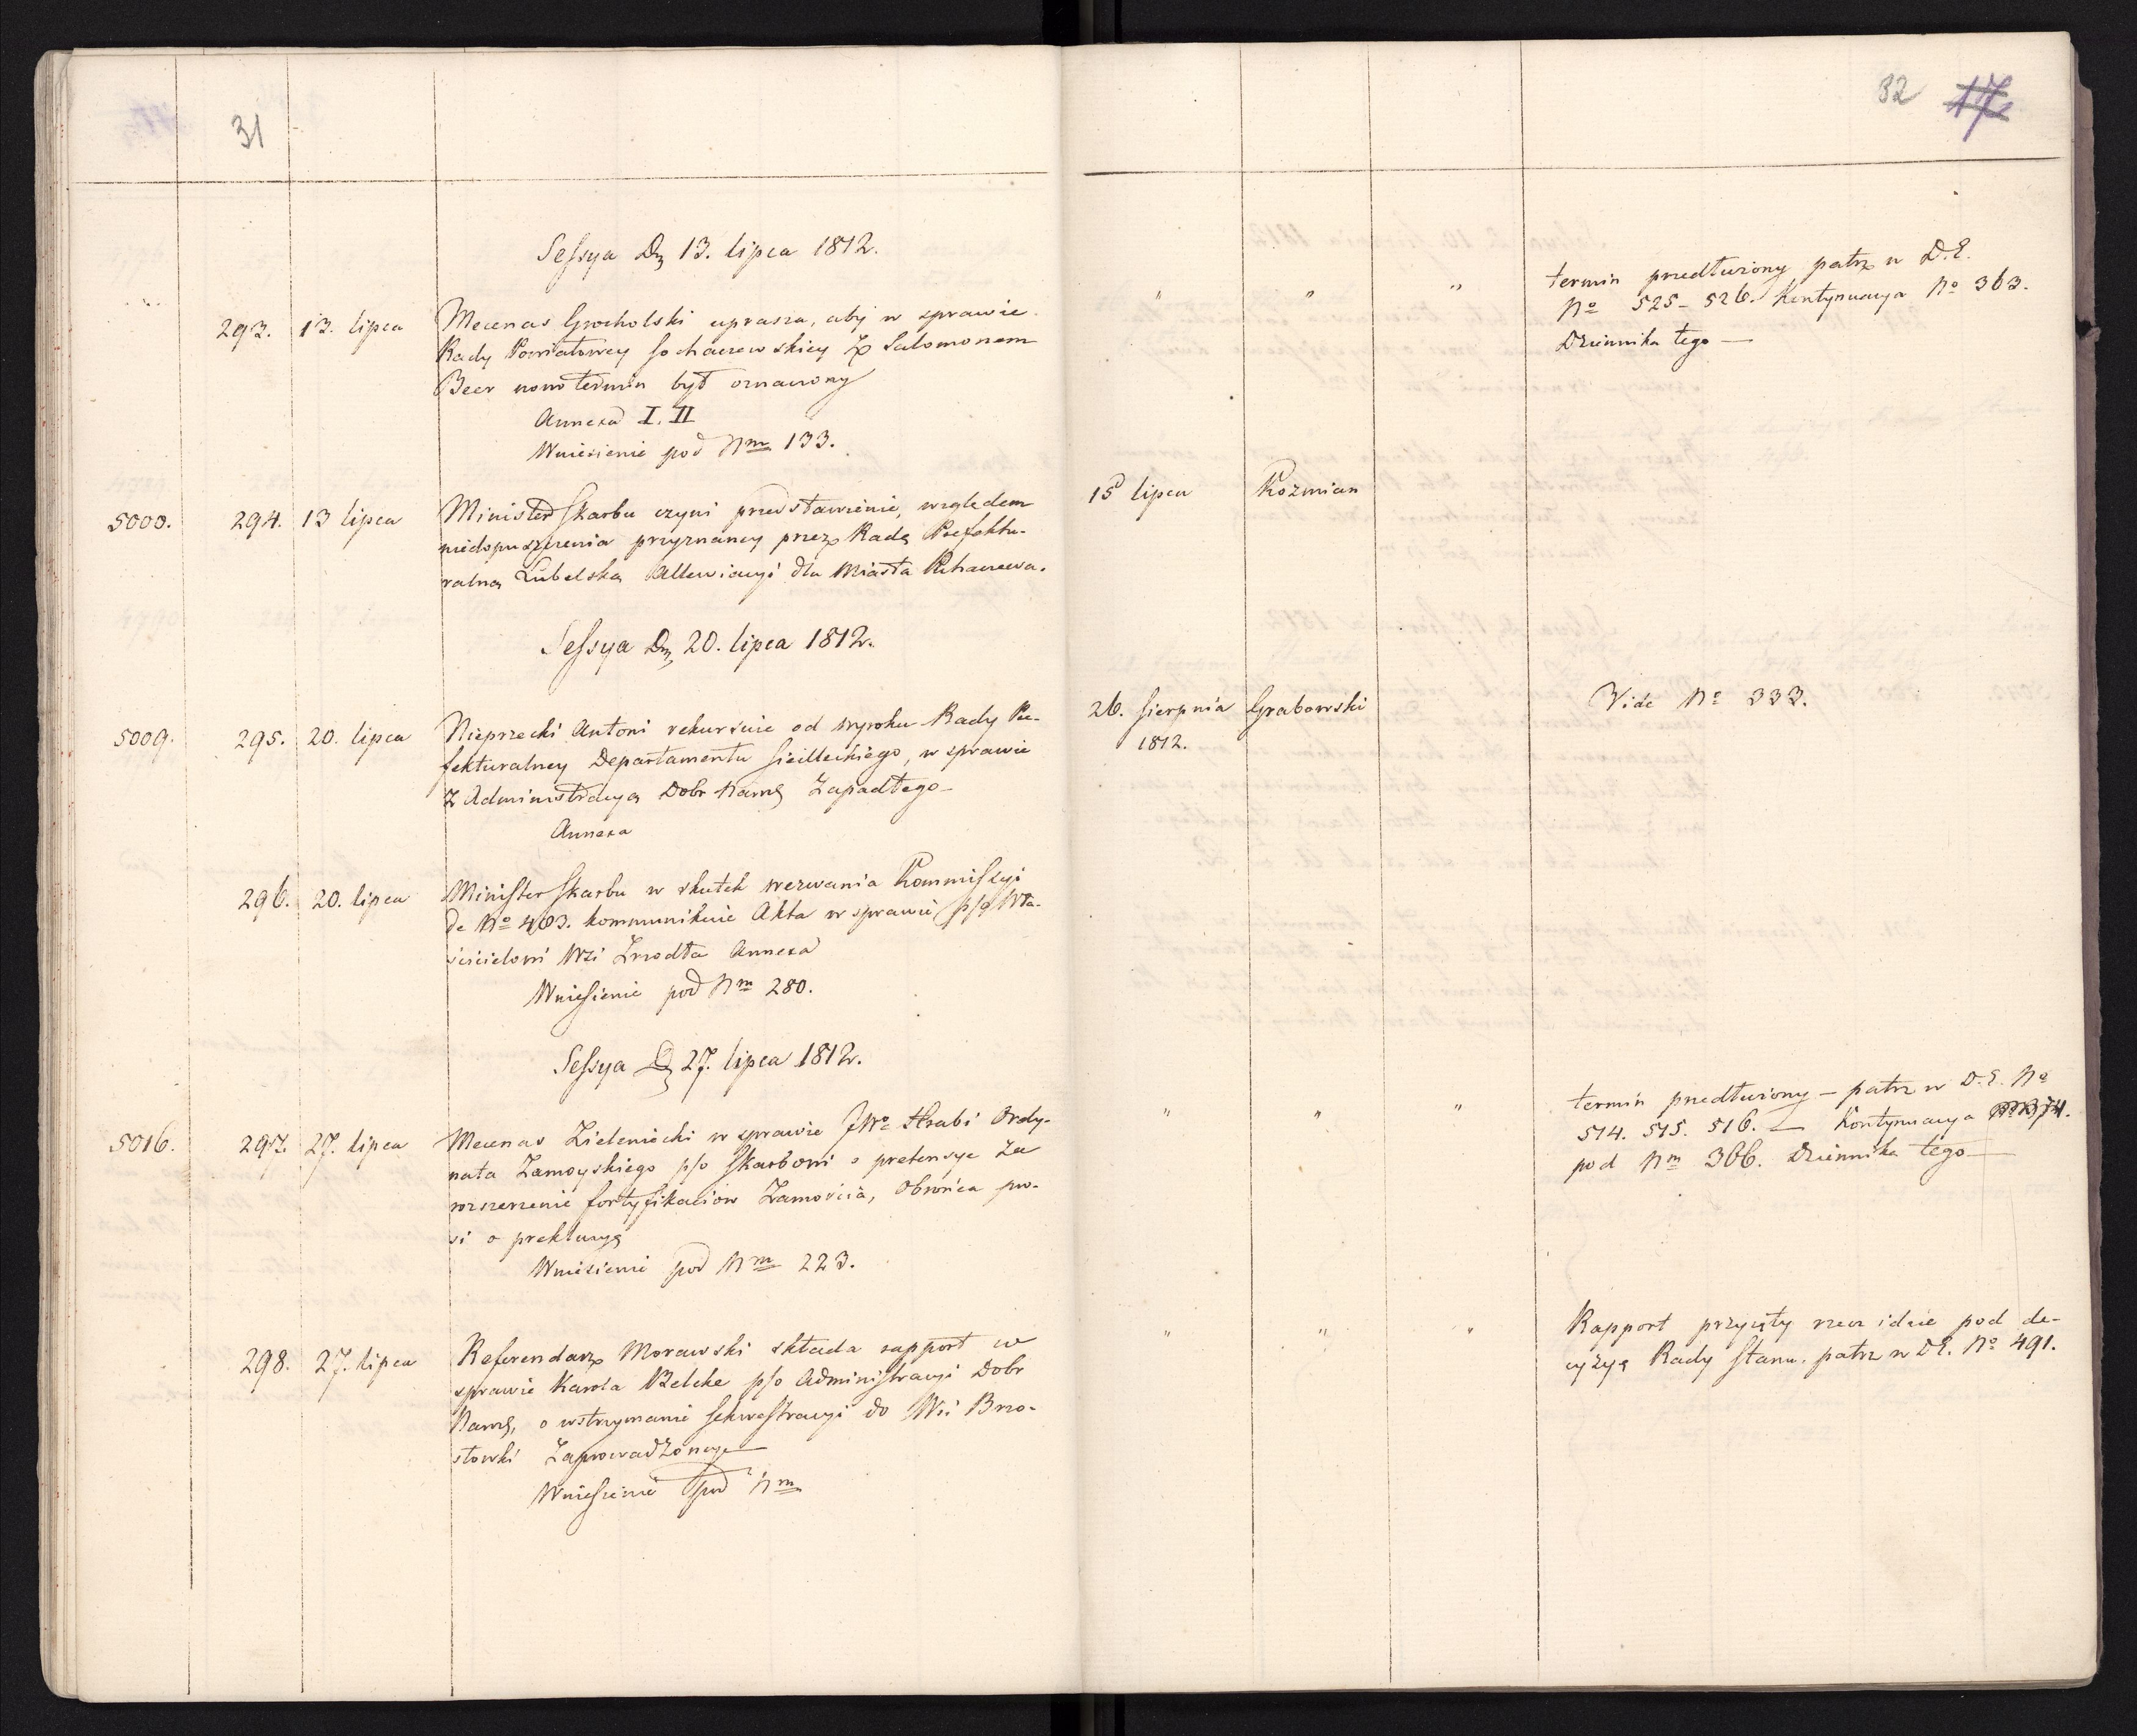 31
Sessya Dn 13. lipca 1812.
293. 13. lipca Mecenas Grocholski uprasza, aby w sprawie
Rady Powiatowey Sochaczewskiey z Salomonem
Beer nowo termin był oznaczony
Annexa I. II
Wniesienie pod Nm 133.
5000. 294. 13 lipca Minister Skarbu czyni przedstawienie, względem
niedopuszczenia przyznaney przez Radę Prefektu-
ralną Lubelską Allewiacyi dla Miasta Puchaczewa.
Sessya Dn 20. lipca 1812.
5009. 295. 20. lipca Nieprzecki Antoni rekursuie od wyroku Rady Pre-
fekturalney Departamentu Siedleckiego, w sprawie
z Administracyą Dobr Narod. Zapadłego
Annexa
296. 20. lipca Minister Skarbu w skutek wezwania Kommissyi
de No 403. kommunikuie Akta w sprawie p/o Wła-
ścicielowi Wsi Zrzodła Annexa
Wniesienie pod Nm 280.
Sessya D 27. lipca 1812.
5016. 297. 27. lipca Mecenas Zieleniecki w sprawie JWo Hrabi Ordy-
nata Zamoyskiego p/o Skarbowi o pretensye za
rozszerzenie fortyfikaciow Zamościa, Obrońca pro-
si o prekluzyą
Wniesienie pod Nm 223.
298. 27. lipca Referendarz Morawski składa rapport w
sprawie Karola Belcke p/o Administracyi Dobr
Narod., o wstrzymanie sekwestracyi do Wsi Brzo-
stowki Zaprowadzoney
Wniesienie pod Nm
32 17
" " " termin przedłużony patrz w D.E.
No 525-526. Kontynuacya No 363.
Dziennika tego
15 lipca Kozmian
26. Sierpnia Grabowski Vide No 333.
1812.
" " " termin przedłużony - patrz w D.E. No
514. 515. 516. Kontynuacya
pod Nm 366. Dziennika tego
" " " Rapport przyięty rzecz idzie pod de-
cyzyą Rady Stanu. patrz w D.E. No 491.